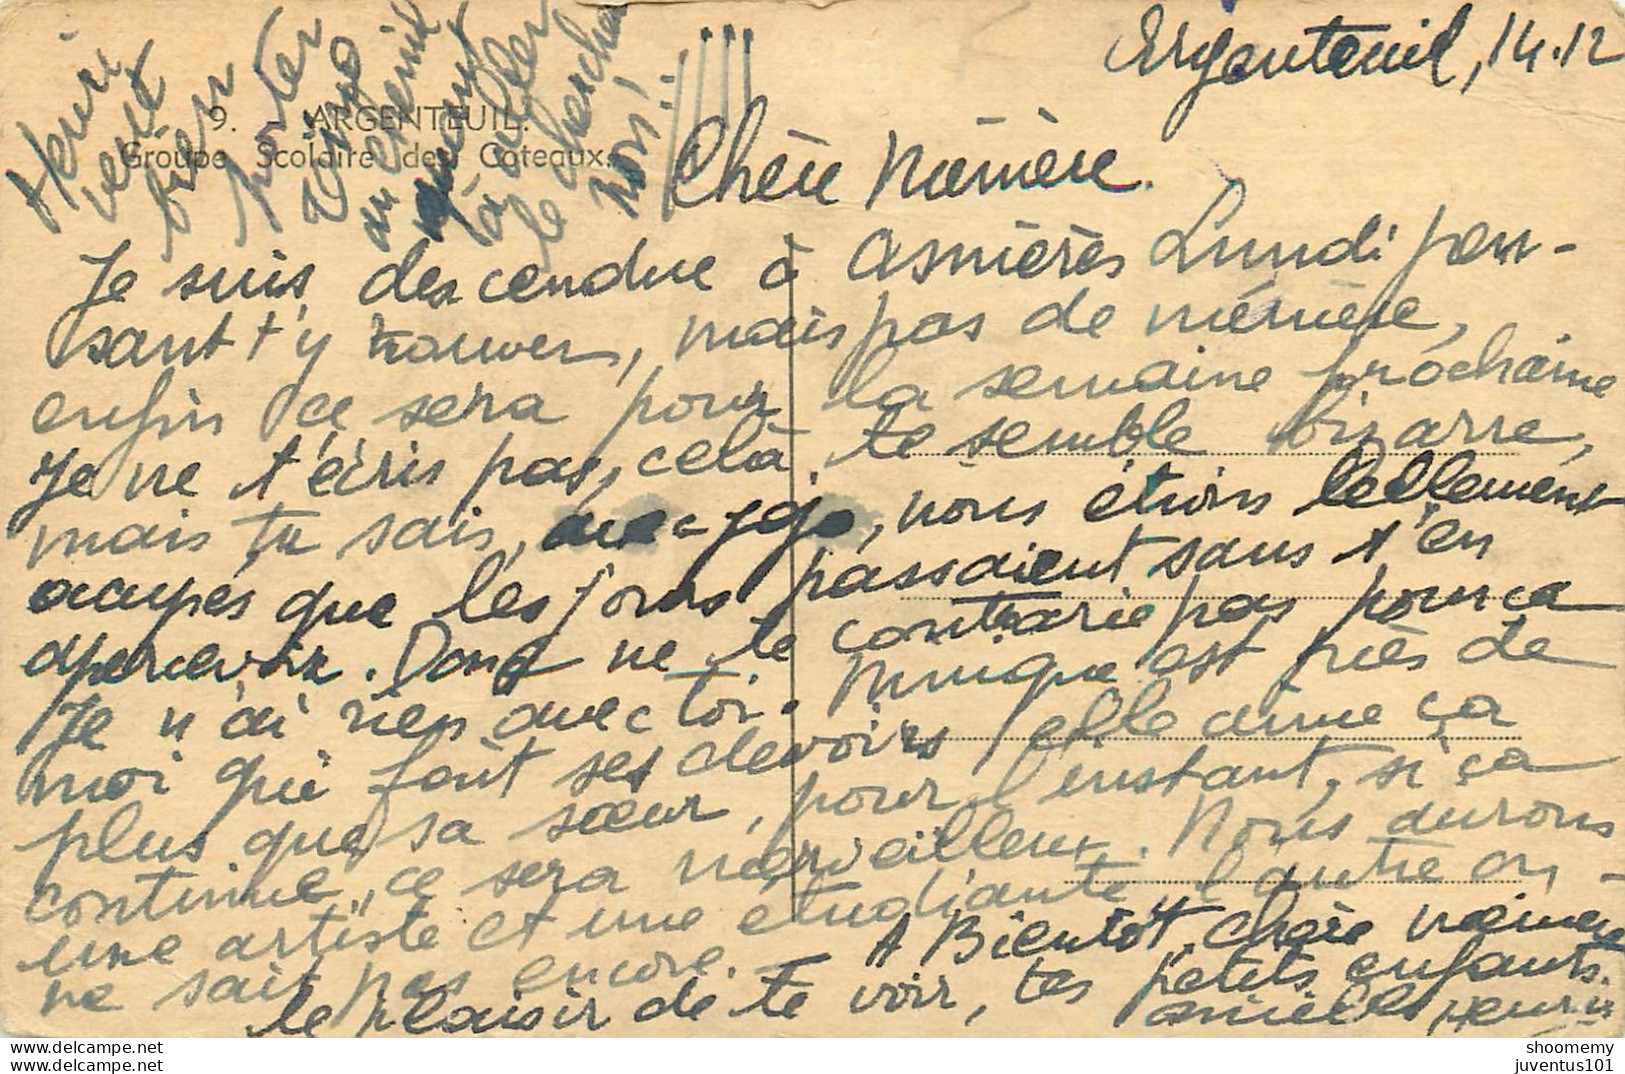 Argenteuil, 14.12
Henri
veut
bien
porter
Jojo
au chenil
quant
à aller
le chercher
non!!
9. - ARGENTEUIL.
Groupe Scolaire des Coteaux.
Chère Mémère.
Je suis descendue à Asnières Lundi pen-
sant t'y trouver, mais pas de mémère,
enfin ce sera pour la semaine prochaine
Je ne t'écris pas, celà te semble bizarre,
mais tu sais, avec jojo, nous étions tellement
occupés que les jours passaient sans s'en
apercevoir. Donc ne te contrarie pas pour ça
Je n'ai rien avec toi. Munique est près de
moi qui fait ses devoirs elle aime ça
plus que sa sœur, pour l'instant, si ça
continue, ce sera merveilleux. Nous aurons
une artiste et une étudiante, l'autre on
ne sait pas encore. - A Bientôt, chère mémère
le plaisir de te voir, tes petits enfants.
Henri
shoomemy
https://www.delcampe.net/fr/collections/
juventus101